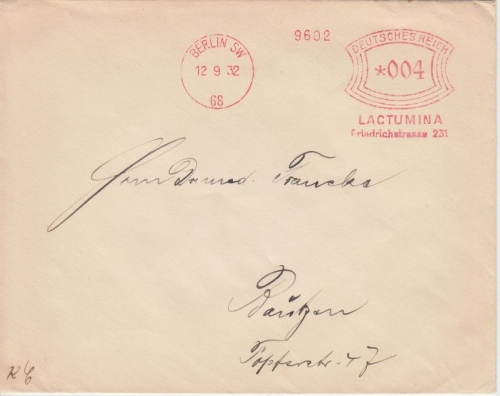 BERLIN SW
12 9 32
68
9602
DEUTSCHES REICH
*004
LACTUMINA
Friedrichstrasse 231
Herrn Dr. med. Francke
Bautzen
Töpferstr. 47
K C